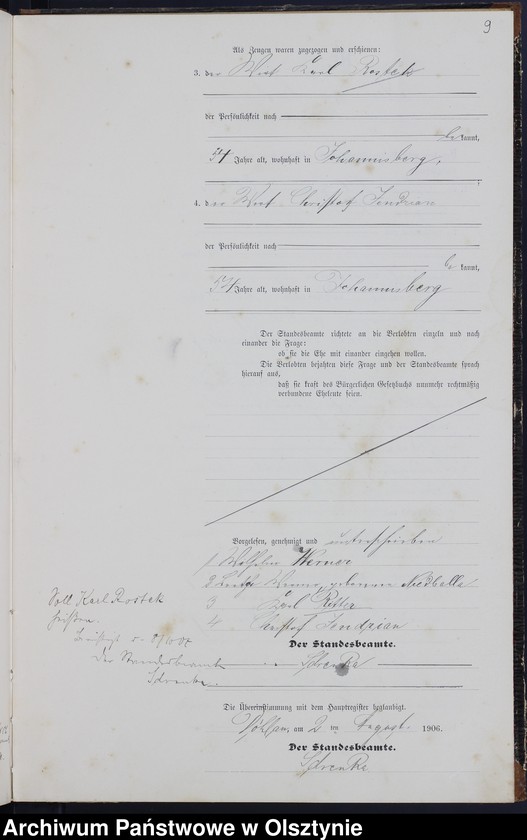 9
Als Zeugen waren zugezogen und erschienen:
3. der Wirt Karl Rostek
der Persönlichkeit nach
be kannt,
54 Jahre alt, wohnhaft in Johannisberg.
4. der Wirt Christof Jendrian
der Persönlichkeit nach
be kannt,
54 Jahre alt, wohnhaft in Johannisberg
Der Standesbeamte richtete an die Verlobten einzeln und nach
einander die Frage:
ob sie die Ehe mit einander eingehen wollen.
Die Verlobten bejahten diese Frage und der Standesbeamte sprach
hierauf aus,
daß sie kraft des Bürgerlichen Gesetzbuchs nunmehr rechtmäßig
verbundene Eheleute seien.
Vorgelesen, genehmigt und unterschrieben
1 Wilhelm Werner
2 Werner, geborene Niedballa
3 Karl
4 Christof Jendrian
Der Standesbeamte.
Schrenke
Soll Karl Rostek
heißen.
Der Standesbeamte
Schrenke.
Die Übereinstimmung mit dem Hauptregister beglaubigt.
am 2 ten August 1906.
Der Standesbeamte.
Schrenke
Archiwum Państwowe w Olsztynie